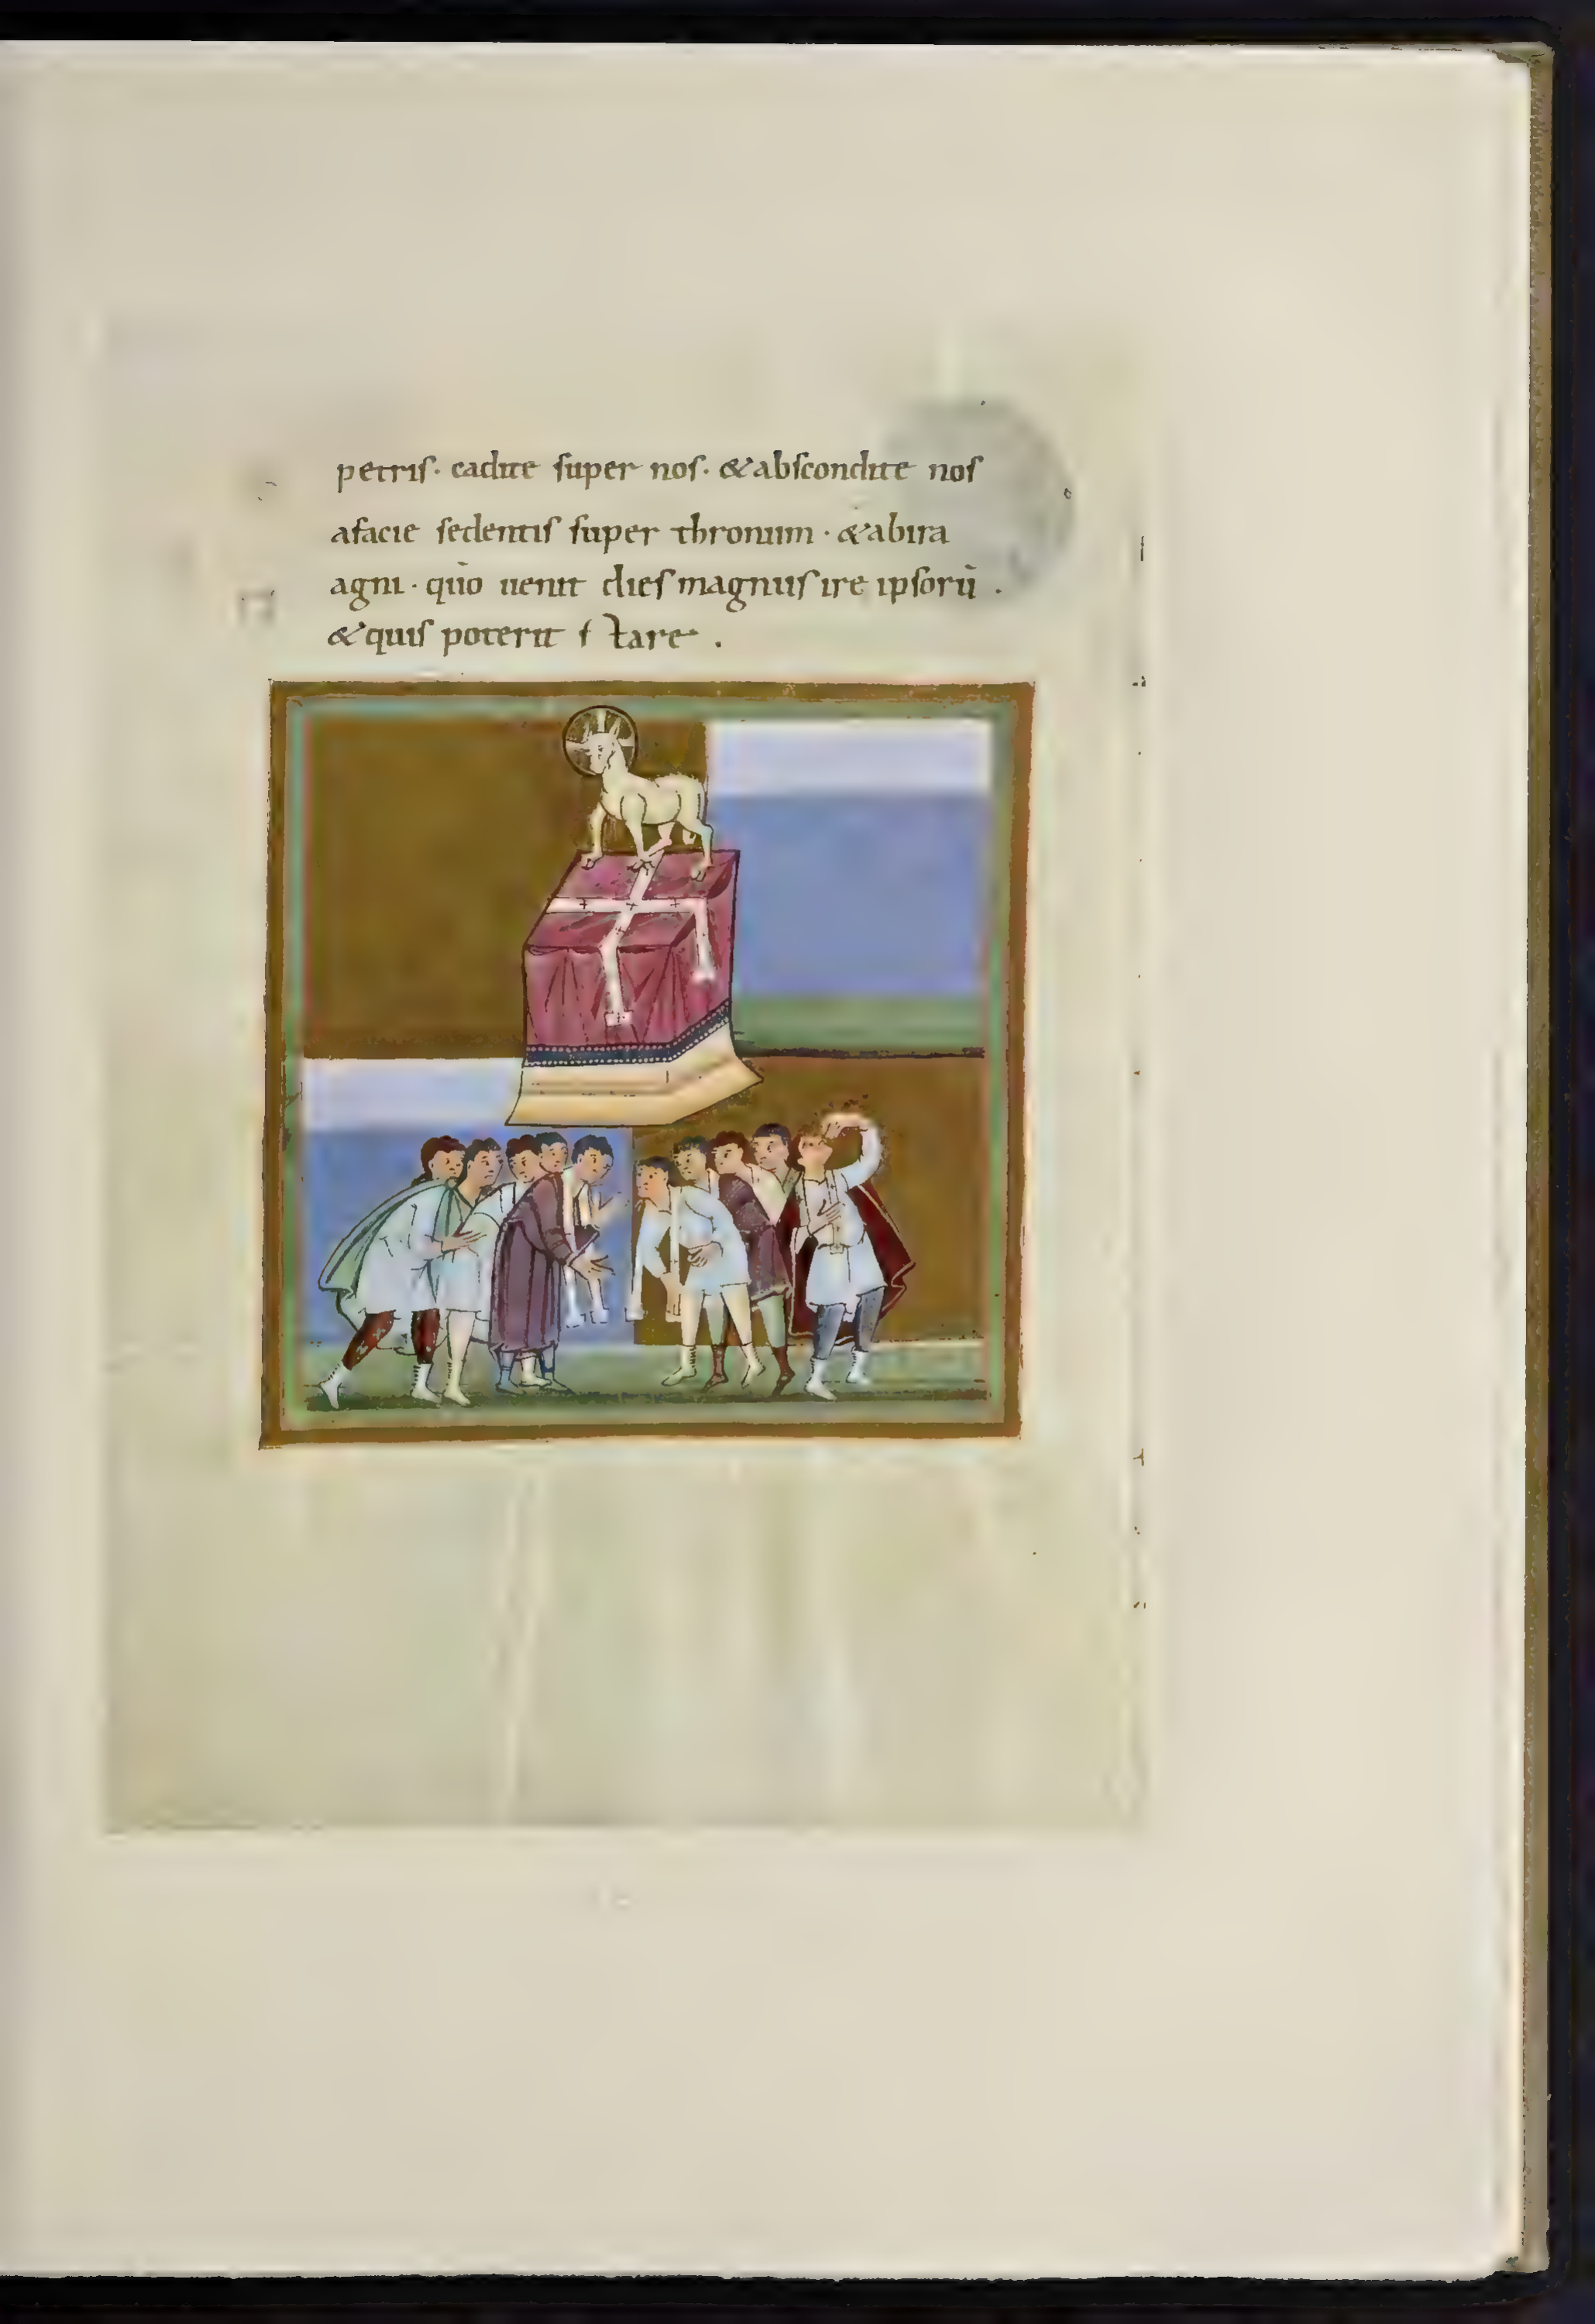 petris· cadite super nos· &abscondite nos
afacie sedentis super thronum· &abira
agni· qūo uenit dies magnus ire ipsorū .
&quis poterit stare .